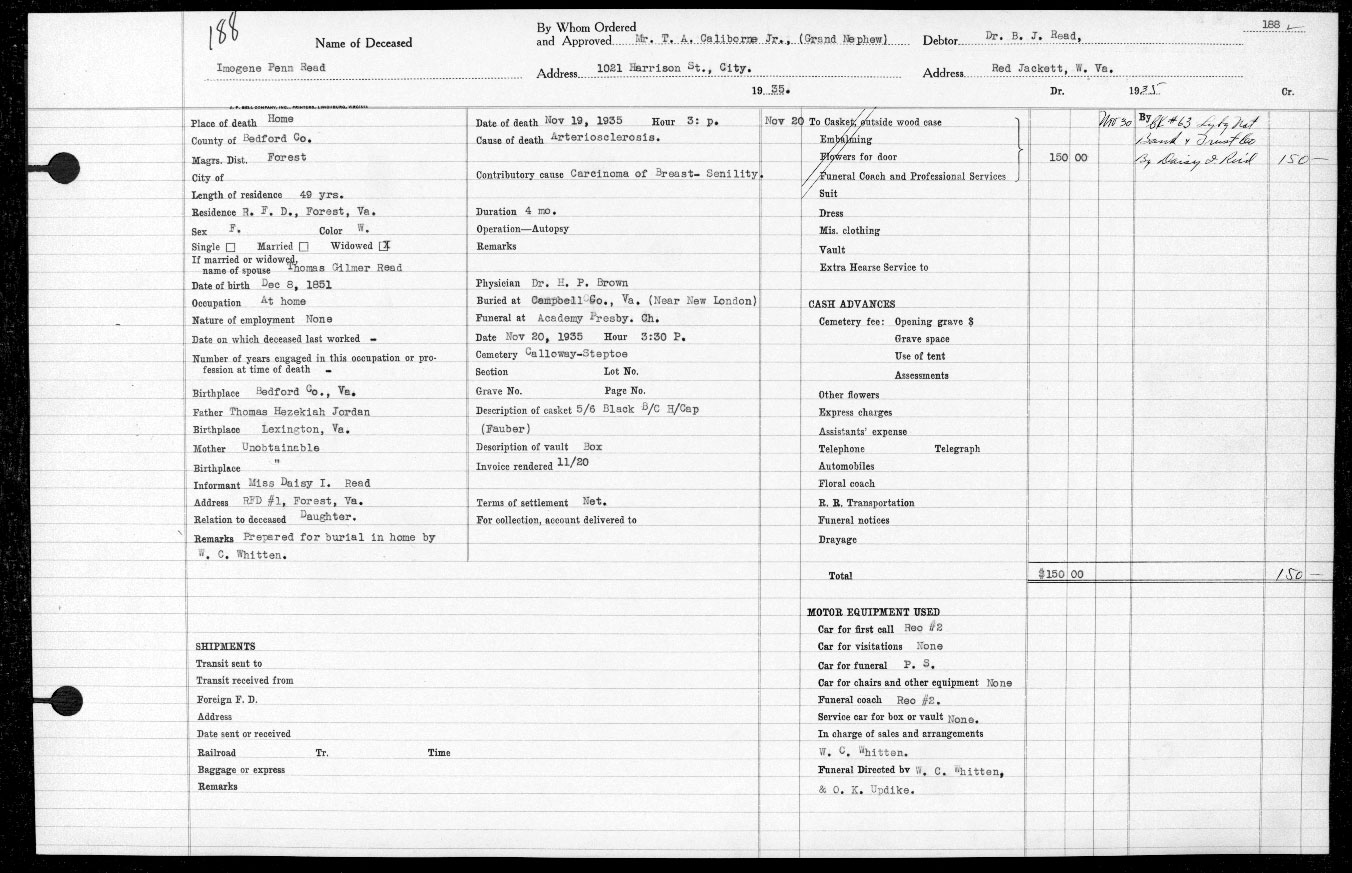 188
Name of Deceased
Imogene Penn Read
By Whom Ordered
and Approved Mr. T. A. Caliborne Jr., (Grand Nephew)
Address 1021 Harrison St., City.
188
Debtor Dr. B. J. Read,
Address Red Jackett, W. Va.
19 35.
Dr. 1935 Cr.
J. P. BELL COMPANY, INC., PRINTERS, LYNCHBURG, VIRGINIA
Place of death Home
County of Bedford Co.
Magrs. Dist. Forest
City of
Length of residence 49 yrs.
Residence R. F. D., Forest, Va.
Sex F. Color W.
Single ☐ Married ☐ Widowed ☒
If married or widowed,
name of spouse Thomas Gilmer Read
Date of birth Dec 8, 1851
Occupation At home
Nature of employment None
Date on which deceased last worked -
Number of years engaged in this occupation or pro-
fession at time of death -
Birthplace Bedford Co., Va.
Father Thomas Hezekiah Jordan
Birthplace Lexington, Va.
Mother Unobtainable
Birthplace "
Informant Miss Daisy I. Read
Address RFD #1, Forest, Va.
Relation to deceased Daughter.
Remarks Prepared for burial in home by
W. C. Whitten.
SHIPMENTS
Transit sent to
Transit received from
Foreign F. D.
Address
Date sent or received
Railroad Tr. Time
Baggage or express
Remarks
Date of death Nov 19, 1935 Hour 3: p.
Cause of death Arteriosclerosis.
Contributory cause Carcinoma of Breast- Senility.
Duration 4 mo.
Operation—Autopsy
Remarks
Physician Dr. H. P. Brown
Buried at Campbell Co., Va. (Near New London)
Funeral at Academy Presby. Ch.
Date Nov 20, 1935 Hour 3:30 P.
Cemetery Calloway-Steptoe
Section Lot No.
Grave No. Page No.
Description of casket 5/6 Black B/C H/Cap
(Fauber)
Description of vault Box
Invoice rendered 11/20
Terms of settlement Net.
For collection, account delivered to
Nov 20 To Casket, outside wood case
Embalming
Flowers for door 150 00
Funeral Coach and Professional Services
Suit
Dress
Mis. clothing
Vault
Extra Hearse Service to
CASH ADVANCES
Cemetery fee: Opening grave $
Grave space
Use of tent
Assessments
Other flowers
Express charges
Assistants' expense
Telephone Telegraph
Automobiles
Floral coach
R. R. Transportation
Funeral notices
Drayage
Total $150 00 150 —
MOTOR EQUIPMENT USED
Car for first call Reo #2
Car for visitations None
Car for funeral P. S.
Car for chairs and other equipment None
Funeral coach Reo #2.
Service car for box or vault None.
In charge of sales and arrangements
W. C. Whitten.
Funeral Directed by W. C. Whitten,
& O. K. Updike.
Nov 30 By Ck #63 Lybg Nat
Bank & Trust Co
By Daisy I Reid 150 —